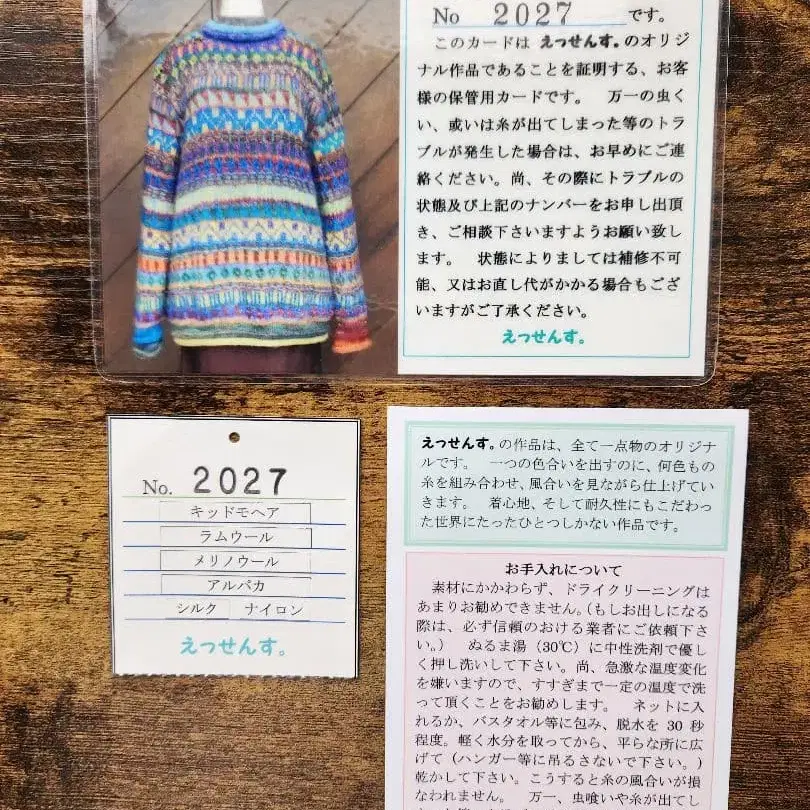 No 2027 です。
このカードは えっせんす。のオリジ
ナル作品であることを証明する、お客
様の保管用カードです。 万一の虫く
い、或いは糸が出てしまった等のトラ
ブルが発生した場合は、お早めにご連
絡ください。尚、その際にトラブルの
状態及び上記のナンバーをお申し出頂
き、ご相談下さいますようお願い致し
ます。 状態によりましては補修不可
能、又はお直し代がかかる場合もござ
いますがご了承ください。
えっせんす。
No. 2027
キッドモヘア
ラムウール
メリノウール
アルパカ
シルク ナイロン
えっせんす。
えっせんす。の作品は、全て一点物のオリジナ
ルです。 一つの色合いを出すのに、何色もの
糸を組み合わせ、風合いを見ながら仕上げてい
きます。 着心地、そして耐久性にもこだわっ
た世界にたったひとつしかない作品です。
お手入れについて
素材にかかわらず、ドライクリーニングは
あまりお勧めできません。(もしお出しになる
際は、必ず信頼のおける業者にご依頼下さ
い。) ぬるま湯(30℃)に中性洗剤で優し
く押し洗いして下さい。尚、急激な温度変化
を嫌いますので、すすぎまで一定の温度で洗
って頂くことをお勧めします。 ネットに入
れるか、バスタオル等に包み、脱水を 30 秒
程度。軽く水分を取ってから、平らな所に広
げて(ハンガー等に吊るさないで下さい。)
乾かして下さい。こうすると糸の風合いが損
なわれません。 万一、虫喰いや糸が出てし